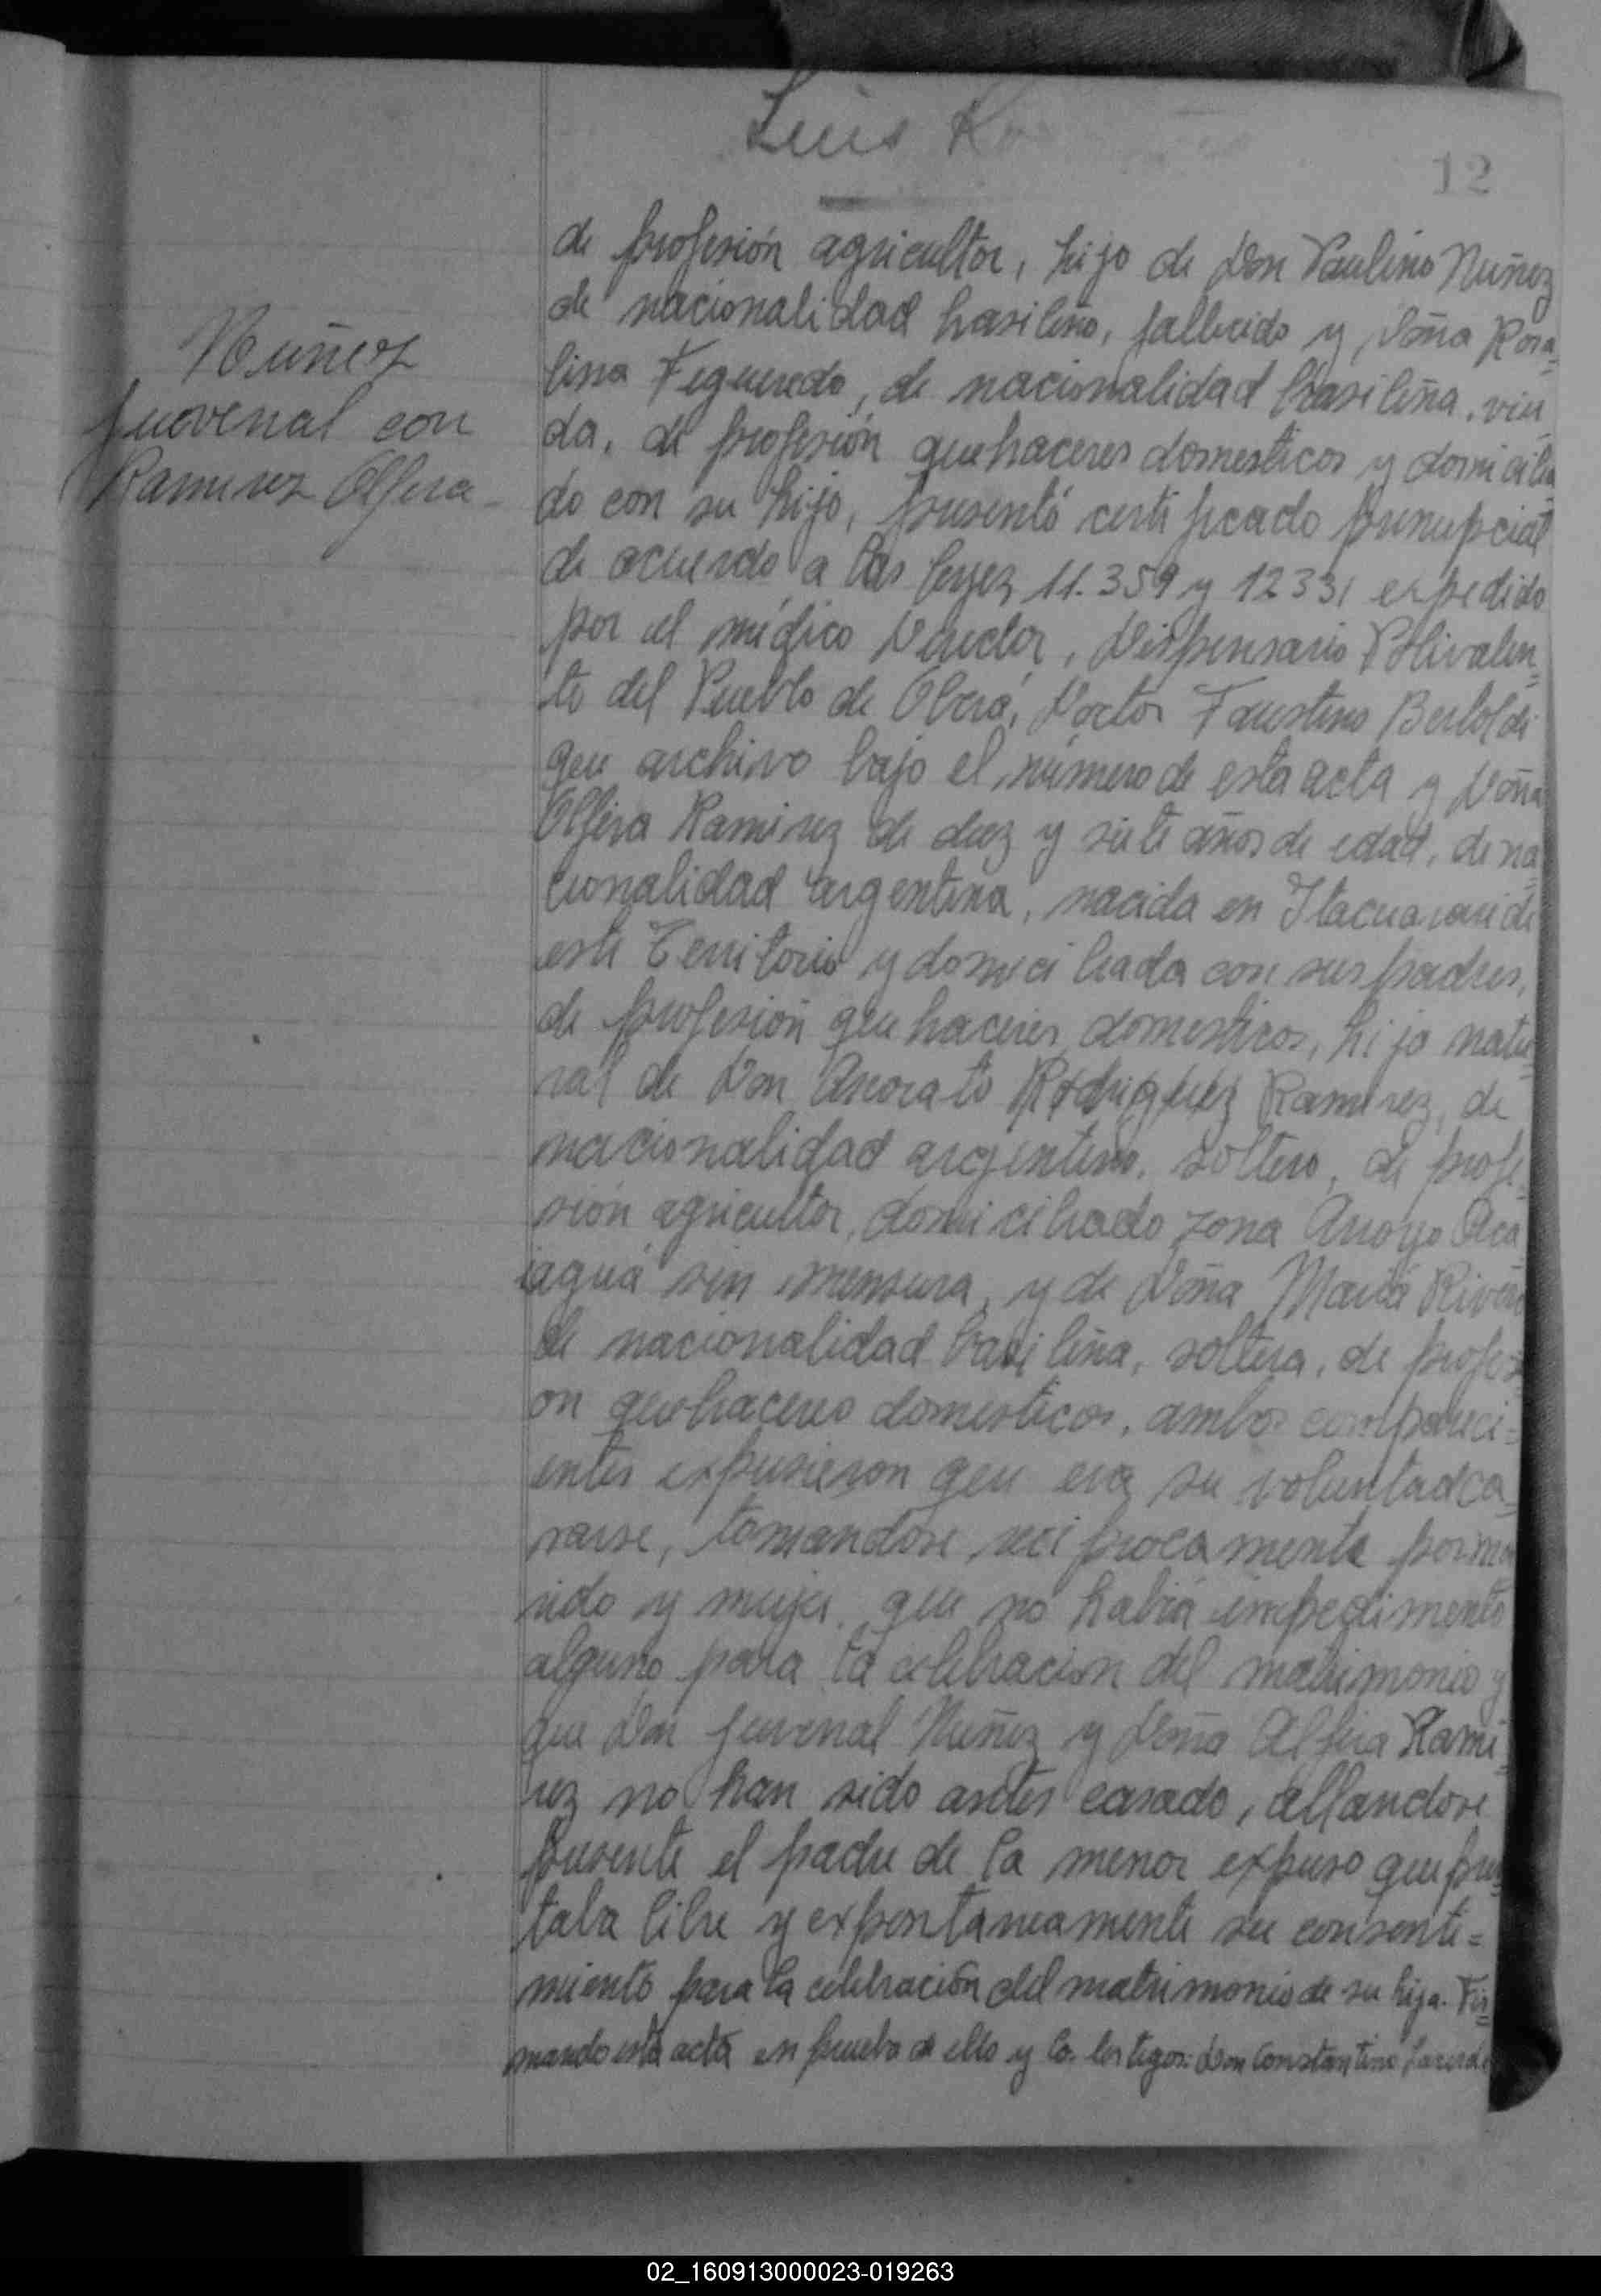 Luis
12
Nuñez
Juovenal con
Ramirez Olfira
de profesión agricultor, hijo de Don Paulino Nuñez
de nacionalidad brasileño, fallecido y, Doña Rosa=
lina Fegueredo, de nacionalidad brasileña, viu
da, de profesión quehaceres domesticos y domicilia
do con su hijo, presentó certificado prenupcial
de acuerdo a las leyez 11.359 y 12331 expedido
por el médico Director, Dispensario Polivalen=
te del Pueblo de Oberá, Doctor Faustino Bertoldi
que archivo bajo el número de esta acta y Doña
Olfira Ramirez de diez y siete años de edad, de na
cionalidad argentina, nacida en Itacuarari de
este Territorio y domiciliada con sus padres,
de profesión quehaceres domesticos, hija natu=
ral de Don Anorato Rodriguez Ramirez, de
nacionalidad argentino, soltero, de profe=
sión agricultor, domiciliado zona Arroyo Aca
raguá sin mensura, y de Doña Maria
de nacionalidad brasileña, soltera, de profesi
on quehaceres domesticos, ambos compareci=
entes expusieron que era su voluntad ca=
sarse, tomandose reciprocamente por ma
rido y mujer, que no había impedimento
alguno para la celebracion del matrimonio y
que Don Juvenal Nuñez y Doña Alfira Rami=
rez no han sido antes casado, allandose
presente el padre de la menor expuso que pres=
taba libre y expontaneamente su consenti=
miento para la celebración del matrimonio de su hija. Fir=
mando esta acta en prueba de ello y los testigos: Don Constantino
02_160913000023-019263